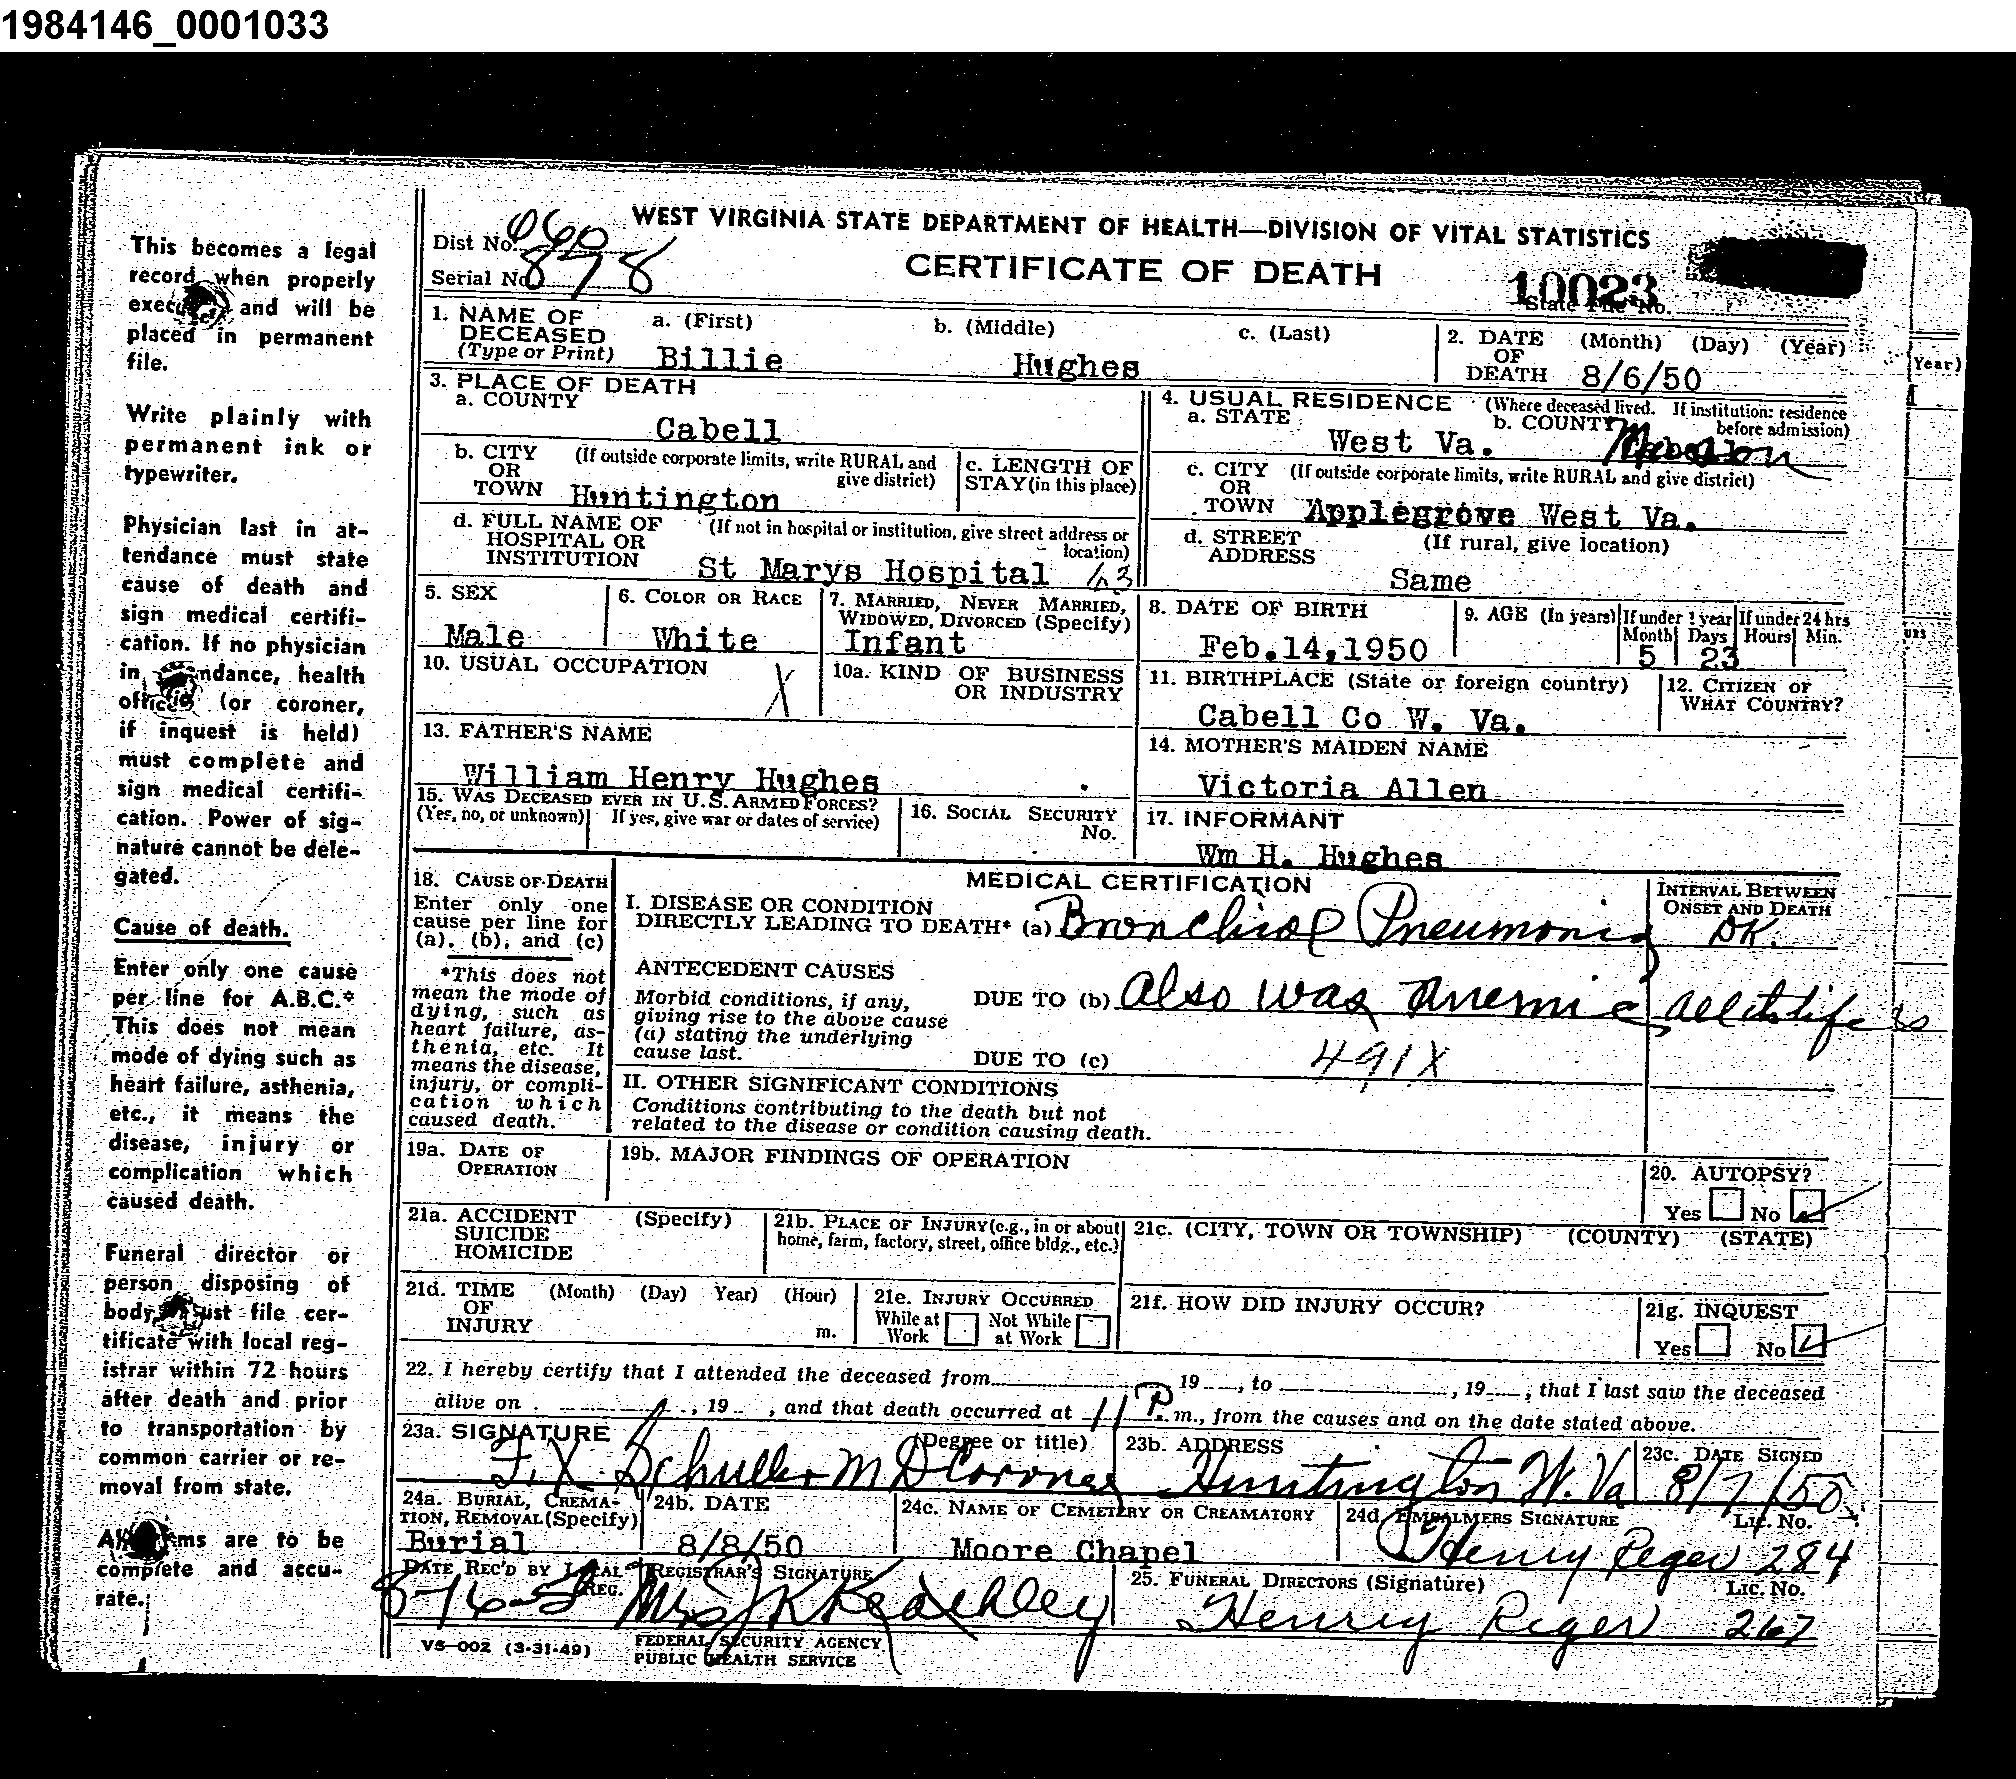 1984146_0001033
WEST VIRGINIA STATE DEPARTMENT OF HEALTH—DIVISION OF VITAL STATISTICS
CERTIFICATE OF DEATH
Dist No. 060
Serial No. 898
10023
State File No.
This becomes a legal
record when properly
and will be
placed in permanent
file.
Write plainly with
permanent ink or
typewriter.
Physician last in at-
tendance must state
cause of death and
sign medical certifi-
cation. If no physician
in ndance, health
(or coroner,
if inquest is held)
must complete and
sign medical certifi-
cation. Power of sig-
nature cannot be dele-
gated.
Cause of death.
Enter only one cause
per line for A.B.C.*
This does not mean
mode of dying such as
heart failure, asthenia,
etc., it means the
disease, injury or
complication which
caused death.
Funeral director or
person disposing of
body file cer-
tificate with local reg-
istrar within 72 hours
after death and prior
to transportation by
common carrier or re-
moval from state.
are to be
complete and accu-
rate.
1. NAME OF DECEASED (Type or Print) a. (First) b. (Middle) c. (Last)
Billie Hughes
2. DATE OF DEATH (Month) (Day) (Year)
8/6/50
Year)
3. PLACE OF DEATH
a. COUNTY
Cabell
4. USUAL RESIDENCE (Where deceased lived. If institution: residence before admission)
a. STATE West Va. b. COUNTY Mason
b. CITY OR TOWN (If outside corporate limits, write RURAL and give district)
Huntington
c. LENGTH OF STAY (in this place)
c. CITY OR TOWN (If outside corporate limits, write RURAL and give district)
Applegrove West Va.
d. FULL NAME OF HOSPITAL OR INSTITUTION (If not in hospital or institution, give street address or location)
St Marys Hospital 63
d. STREET ADDRESS (If rural, give location)
Same
5. SEX
Male
6. COLOR OR RACE
White
7. MARRIED, NEVER MARRIED, WIDOWED, DIVORCED (Specify)
Infant
8. DATE OF BIRTH
Feb.14,1950
9. AGE (In years) If under 1 year If under 24 hrs
Month Days Hours Min.
5 23
10. USUAL OCCUPATION
X
10a. KIND OF BUSINESS OR INDUSTRY
11. BIRTHPLACE (State or foreign country)
Cabell Co W. Va.
12. CITIZEN OF WHAT COUNTRY?
13. FATHER'S NAME
William Henry Hughes
14. MOTHER'S MAIDEN NAME
Victoria Allen
15. WAS DECEASED EVER IN U.S. ARMED FORCES?
(Yes, no, or unknown) If yes, give war or dates of service)
16. SOCIAL SECURITY No.
17. INFORMANT
Wm H. Hughes
18. CAUSE OF DEATH
Enter only one
cause per line for
(a), (b), and (c)
*This does not
mean the mode of
dying, such as
heart failure, as-
thenia, etc. It
means the disease,
injury, or compli-
cation which
caused death.
MEDICAL CERTIFICATION
INTERVAL BETWEEN ONSET AND DEATH
I. DISEASE OR CONDITION
DIRECTLY LEADING TO DEATH* (a) Bronchial Pneumonia DK.
ANTECEDENT CAUSES
Morbid conditions, if any,
giving rise to the above cause
(a) stating the underlying
cause last.
DUE TO (b) Also was Anemic all its life
DUE TO (c) 491X
II. OTHER SIGNIFICANT CONDITIONS
Conditions contributing to the death but not
related to the disease or condition causing death.
19a. DATE OF OPERATION
19b. MAJOR FINDINGS OF OPERATION
20. AUTOPSY?
Yes No
21a. ACCIDENT SUICIDE HOMICIDE (Specify)
21b. PLACE OF INJURY (e.g., in or about home, farm, factory, street, office bldg., etc.)
21c. (CITY, TOWN OR TOWNSHIP) (COUNTY) (STATE)
21d. TIME OF INJURY (Month) (Day) Year) (Hour) m.
21e. INJURY OCCURRED
While at Work Not While at Work
21f. HOW DID INJURY OCCUR?
21g. INQUEST
Yes No
22. I hereby certify that I attended the deceased from 19 , to , 19 , that I last saw the deceased
alive on , 19 , and that death occurred at 11 P. m., from the causes and on the date stated above.
23a. SIGNATURE (Degree or title)
F.X. Schuller M D Coroner
23b. ADDRESS
Huntington W. Va
23c. DATE SIGNED
8/7/50
24a. BURIAL, CREMA-
TION, REMOVAL (Specify)
Burial
24b. DATE
8/8/50
24c. NAME OF CEMETERY OR CREAMATORY
Moore Chapel
24d. EMBALMERS SIGNATURE Lic. No.
Henry Reger 284
DATE REC'D BY LOCAL REG.
REGISTRAR'S SIGNATURE
25. FUNERAL DIRECTORS (Signature) Lic. No.
Henry Reger 267
VS-002 (3-31-49)
FEDERAL SECURITY AGENCY
PUBLIC HEALTH SERVICE